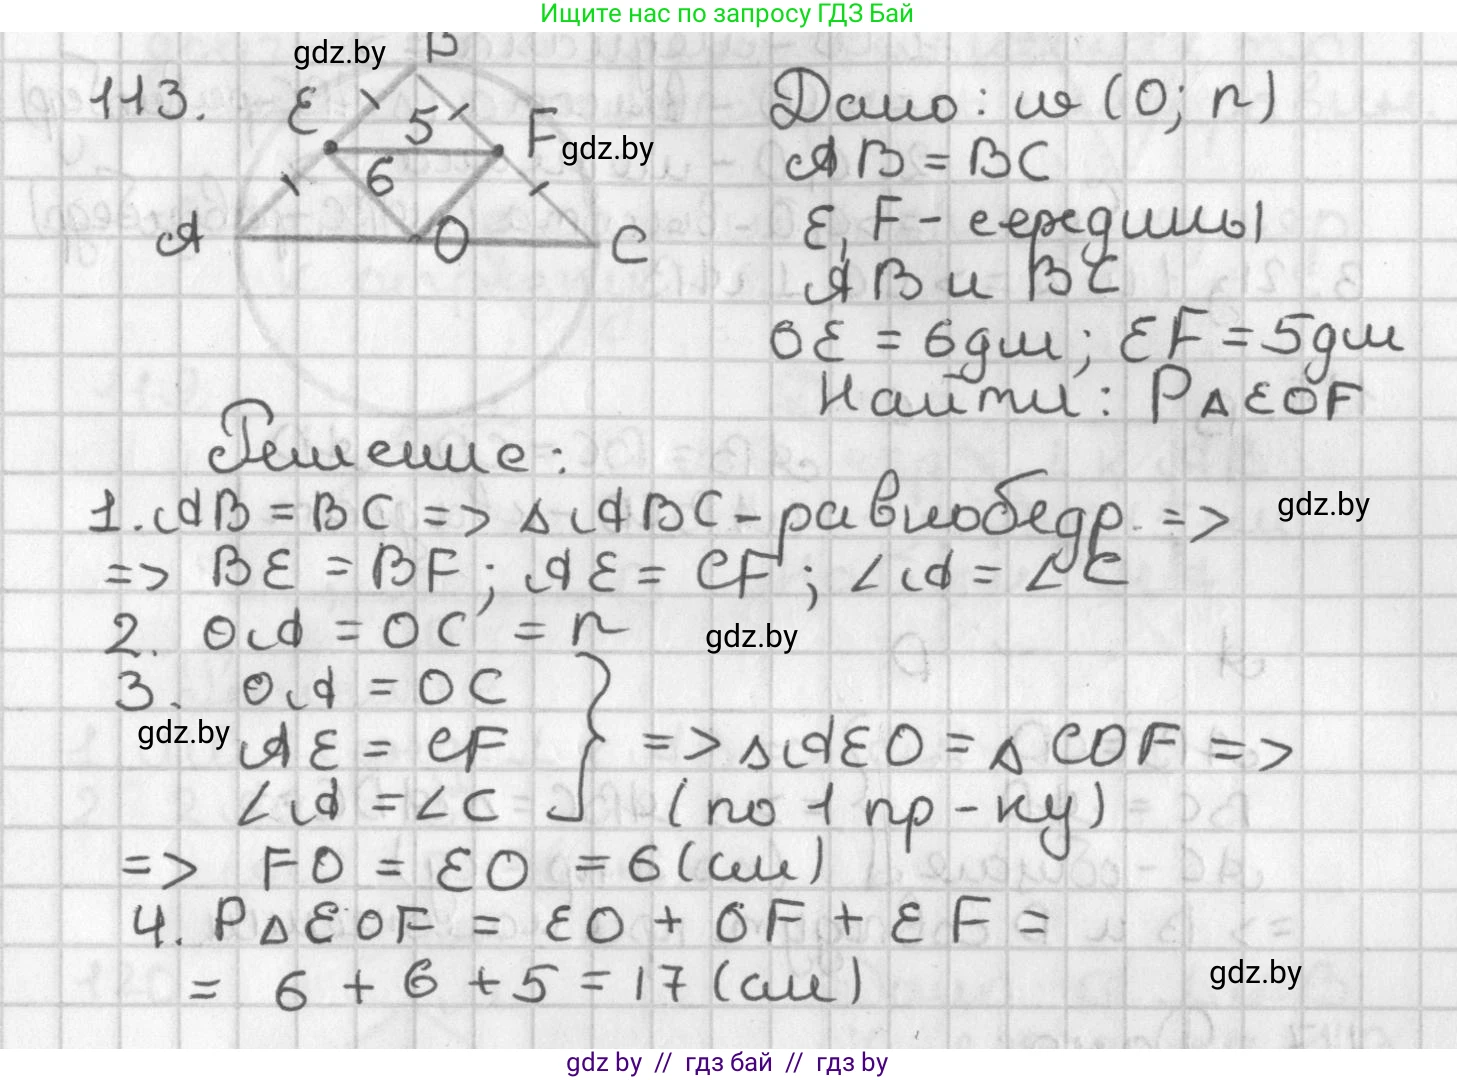 Ищите нас по запросу ГДЗ Бай
gdz.by
113.
B
E
5
F
gdz.by
6
A
O
C
Дано: ω (O; r)
AB = BC
E, F - середины
AB и BC
OE = 6дм; EF = 5дм
Найти: P△EOF
Решение:
1. AB = BC => △ABC - равнобедр. =>
gdz.by
=> BE = BF; AE = CF; ∠A = ∠C
2. OA = OC = r
gdz.by
3. OA = OC
gdz.by
AE = CF } => △AEO = △COF =>
∠A = ∠C (по 1 пр-ку)
=> FO = EO = 6 (см)
4. P△EOF = EO + OF + EF =
= 6 + 6 + 5 = 17 (см)
gdz.by
gdz by // гдз бай // гдз by